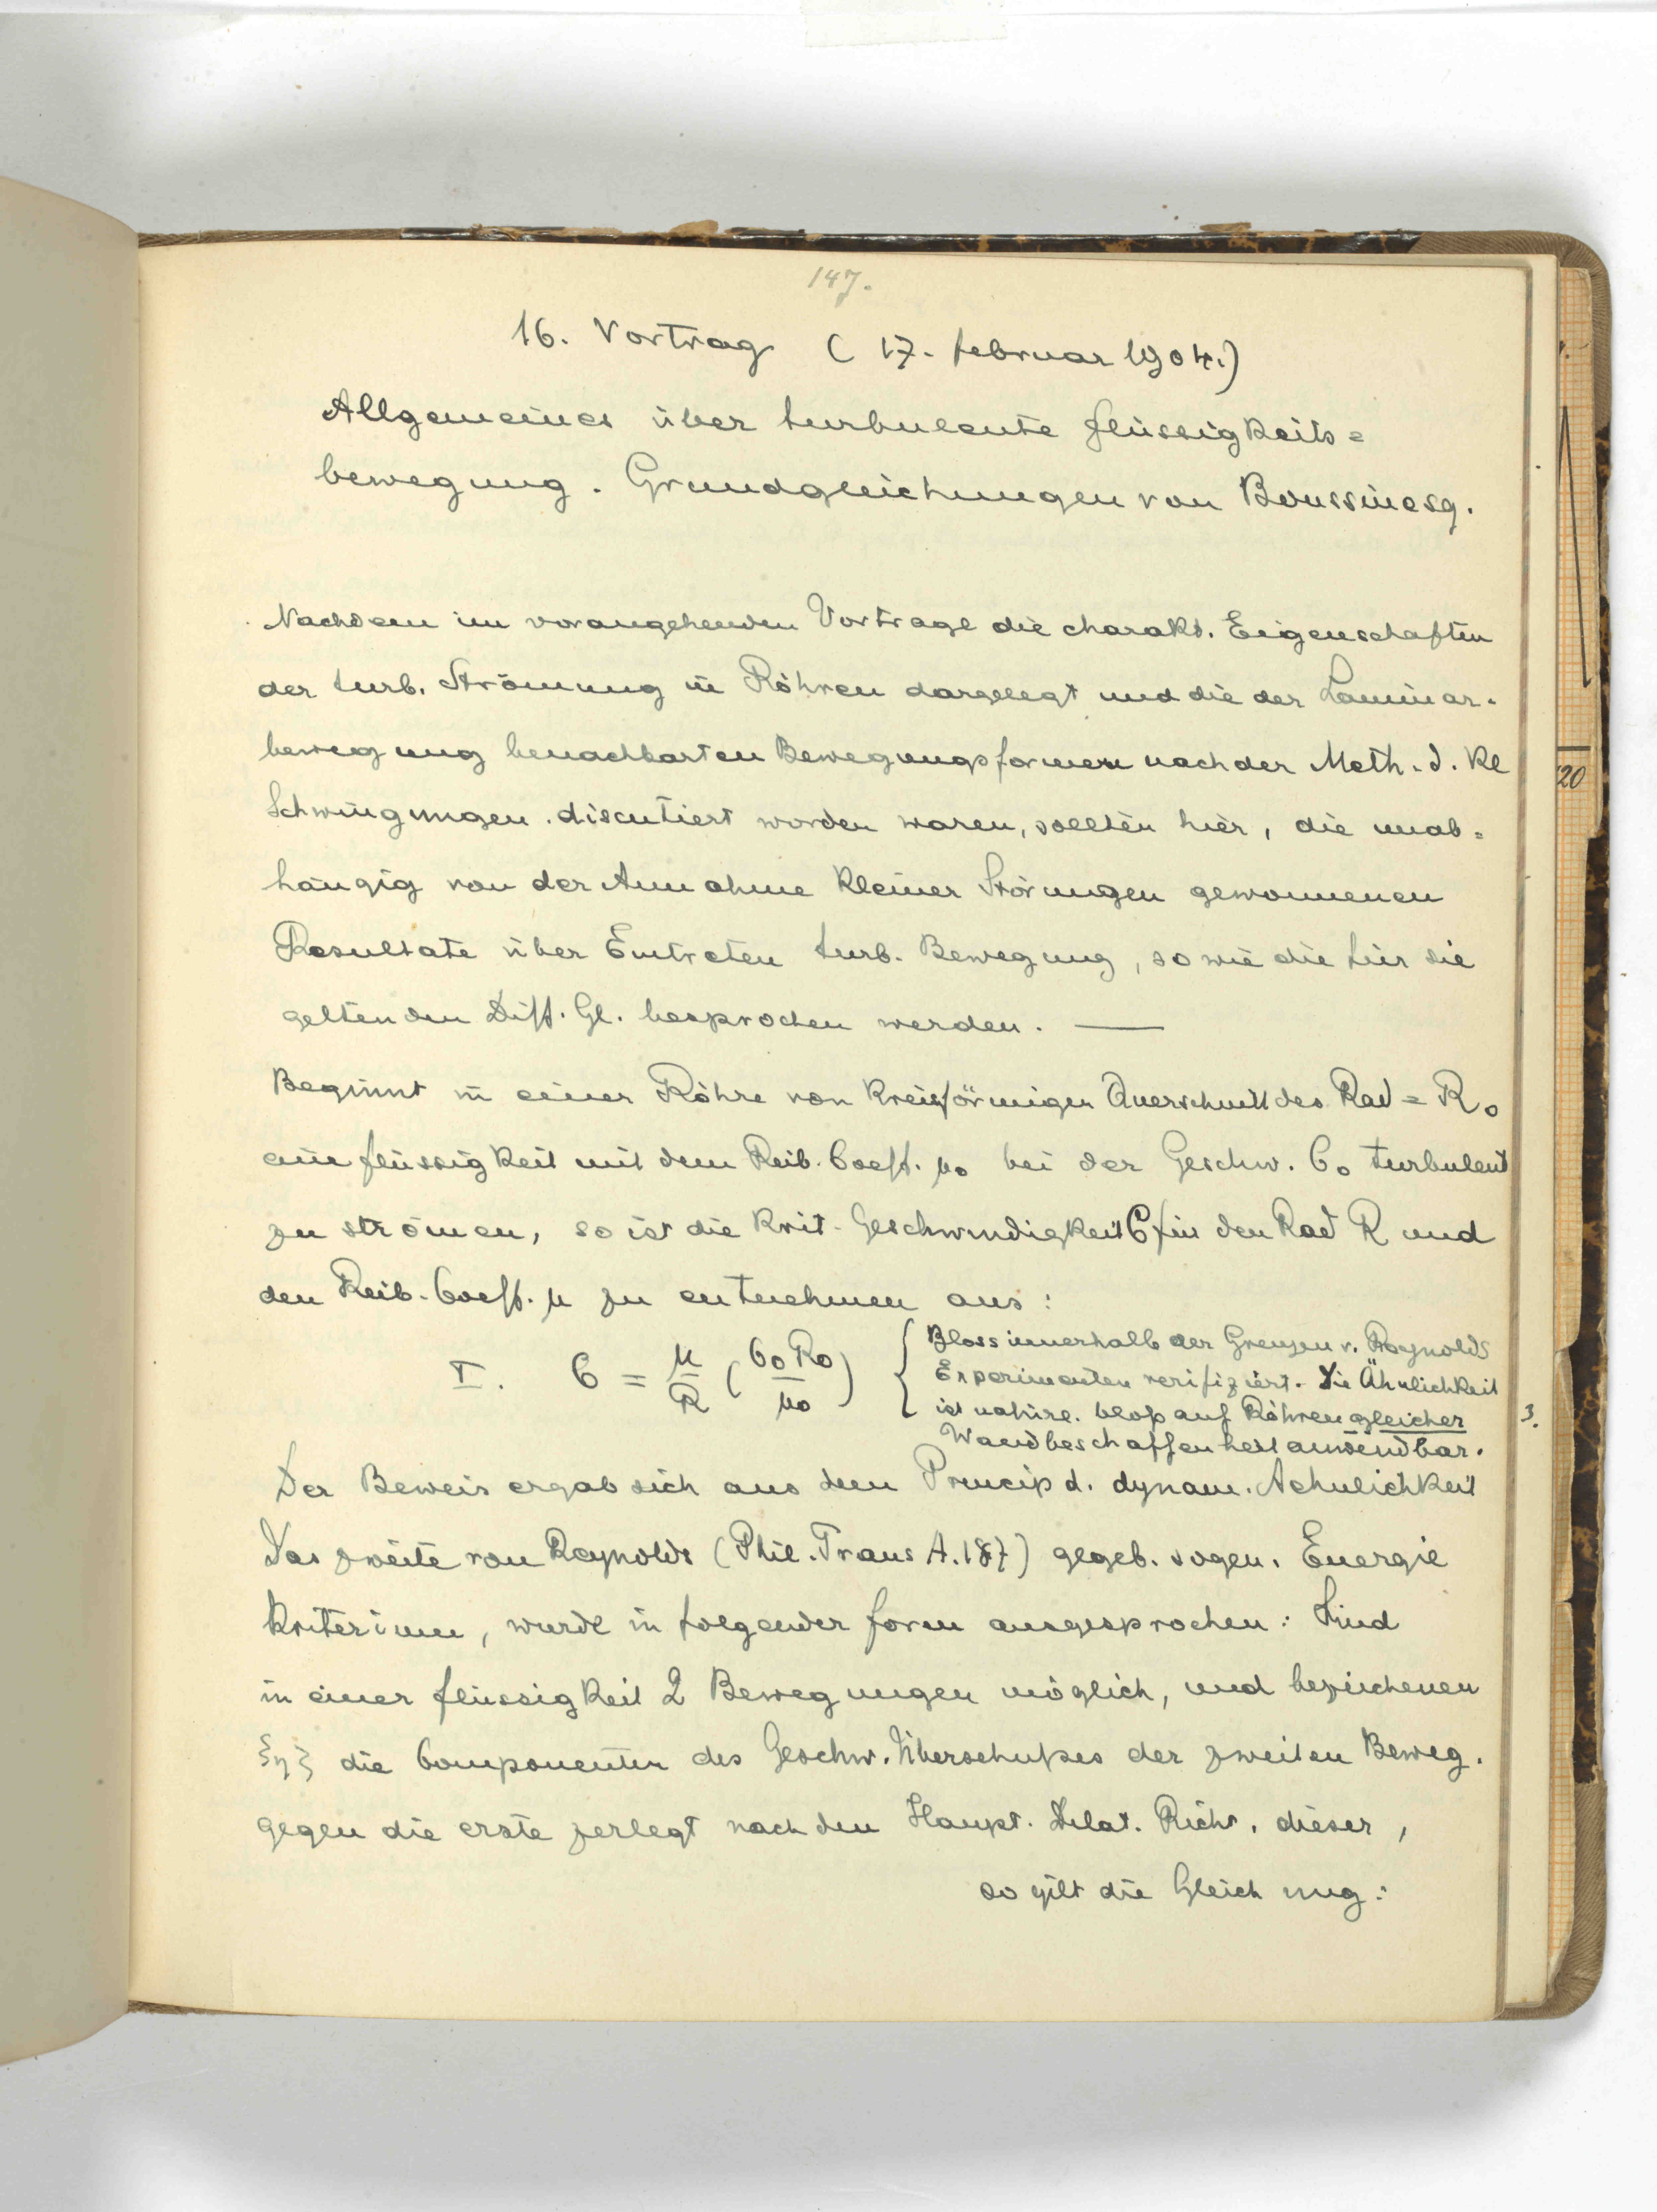 147.
16. Vortrag (17. Februar 1904.)
Allgemeines über turbulente Flüssigkeits=
bewegung. Grundgleichungen von Boussinesq.
Nachdem im vorangehenden Vortrage die charakt. Eigenschaften
der turb. Strömung in Röhren dargelegt und die der Laminar-
bewegung benachbarten Bewegungsformen nach der Meth. d. kl
Schwingungen discutiert worden waren, sollten hier, die unab=
hängig von der Annahme kleiner Störungen gewonnenen
Resultate über Eintreten turb. Bewegung, so wie die für sie
geltenden Diff. Gl. besprochen werden. —
Beginnt in einer Röhre von kreisförmigen Querschnitt des Rad = R₀
eine Flüssigkeit mit dem Reib. Coeff. μ₀ bei der Geschw. C₀ turbulent
zu strömen, so ist die krit. Geschwindigkeit C für den Rad R und
den Reib. Coeff. μ zu entnehmen aus:
I. C = μ/R (C₀R₀/μ₀)
Bloss innerhalb der Grenzen v. Reynolds
Experimenten verifiziert. Die Ähnlichkeit
ist natürl. bloß auf Röhren gleicher
Wandbeschaffenheit anwendbar.
Der Beweis ergab sich aus dem Princip d. dynam. Aehnlichkeit
Das zweite von Reynolds (Phil. Trans A. 187) gegeb. sogen. Energie
kriterium, wurde in folgender Form ausgesprochen: Sind
in einer Flüssigkeit 2 Bewegungen möglich, und bezeichenen
ξηζ die Componenten des Geschw. Überschußes der zweiten Beweg.
gegen die erste zerlegt nach den Haupt. Dilat. Richt. dieser,
so gilt die Gleichung:
20
3.